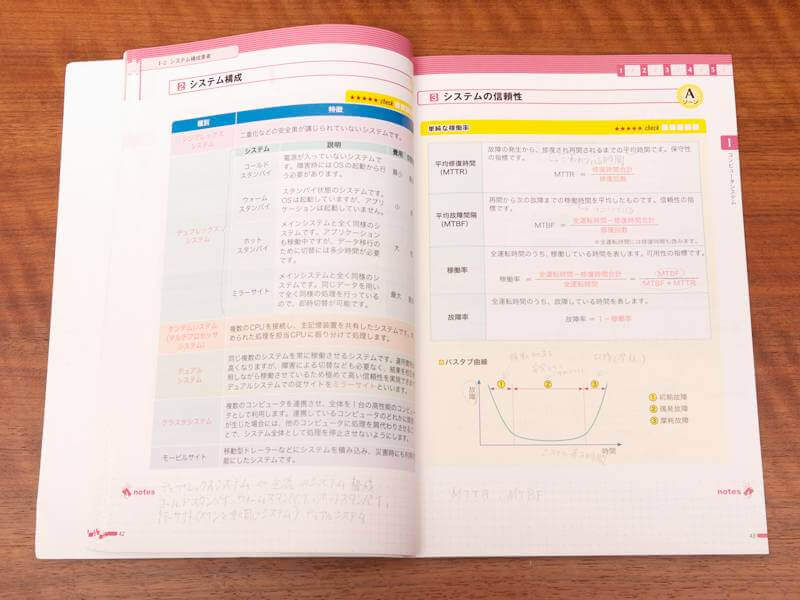 1-2 システム構成要素
2 システム構成
★★★★★ check
種別
特徴
シンプレックス
システム
二重化などの安全策が講じられていないシステムです。
システム
説明
費用
デュプレックス
システム
コールド
スタンバイ
電源が入っていないシステムで
す。障害時にはOSの起動から行
う必要があります。
最小
ウォーム
スタンバイ
スタンバイ状態のシステムです。
OSは起動していますが、アプリ
ケーションは起動していません。
小
ホット
スタンバイ
メインシステムと全く同様のシ
ステムです。アプリケーション
も稼働中ですが、データ移行の
ために切替には多少時間が必要
です。
大
ミラーサイト
メインシステムと全く同様のシ
ステムです。同じデータを用い
て全く同様の処理を行っている
ので、即時切替が可能です。
最大
タンデムシステム
(マルチプロセッサ
システム)
複数のCPUを接続し、主記憶装置を共有したシステムです。
められた処理を担当CPUに振り分けて処理します。
デュアル
システム
同じ複数のシステムを常に稼働させるシステムです。運用費用
高くなりますが、障害による切替なども必要なく、結果を相互
照しながら稼働させているため極めて高い信頼性を実現できます
デュアルシステムでの従サイトをミラーサイトといいます。
クラスタシステム
複数のコンピュータを連携させ、全体を1台の高性能のコンピュ
タとして利用します。連携しているコンピュータのどれかに障害
が生じた場合には、他のコンピュータに処理を肩代わりさせるこ
とで、システム全体として処理を停止させないようにします。
モービルサイト
移動型トレーラーなどにシステムを積み込み、災害時にも利用
能にしたシステムです。
notes
42
1 2 3 4 5
3 システムの信頼性
A
ゾーン
単純な稼働率
★★★★★ check
平均修復時間
(MTTR)
故障の発生から、修復され再開されるまでの平均時間です。保守性
の指標です。
MTTR = 修復時間合計
修復回数
平均故障間隔
(MTBF)
再開から次の故障までの稼働時間を平均したものです。信頼性の指
標です。
MTBF = 全運転時間−修復時間合計
修復回数
※全運転時間には修復時間も含みます。
稼働率
全運転時間のうち、稼働している時間を表します。可用性の指標です。
稼働率 = 全運転時間−修復時間合計 = MTBF
全運転時間 MTBF+MTTR
故障率
全運転時間のうち、故障している時間を表します。
故障率 = 1−稼働率
バスタブ曲線
故障
① ② ③
時間
① 初期故障
② 偶発故障
③ 摩耗故障
MTTR MTBF
notes
43
1
コンピュータシステム